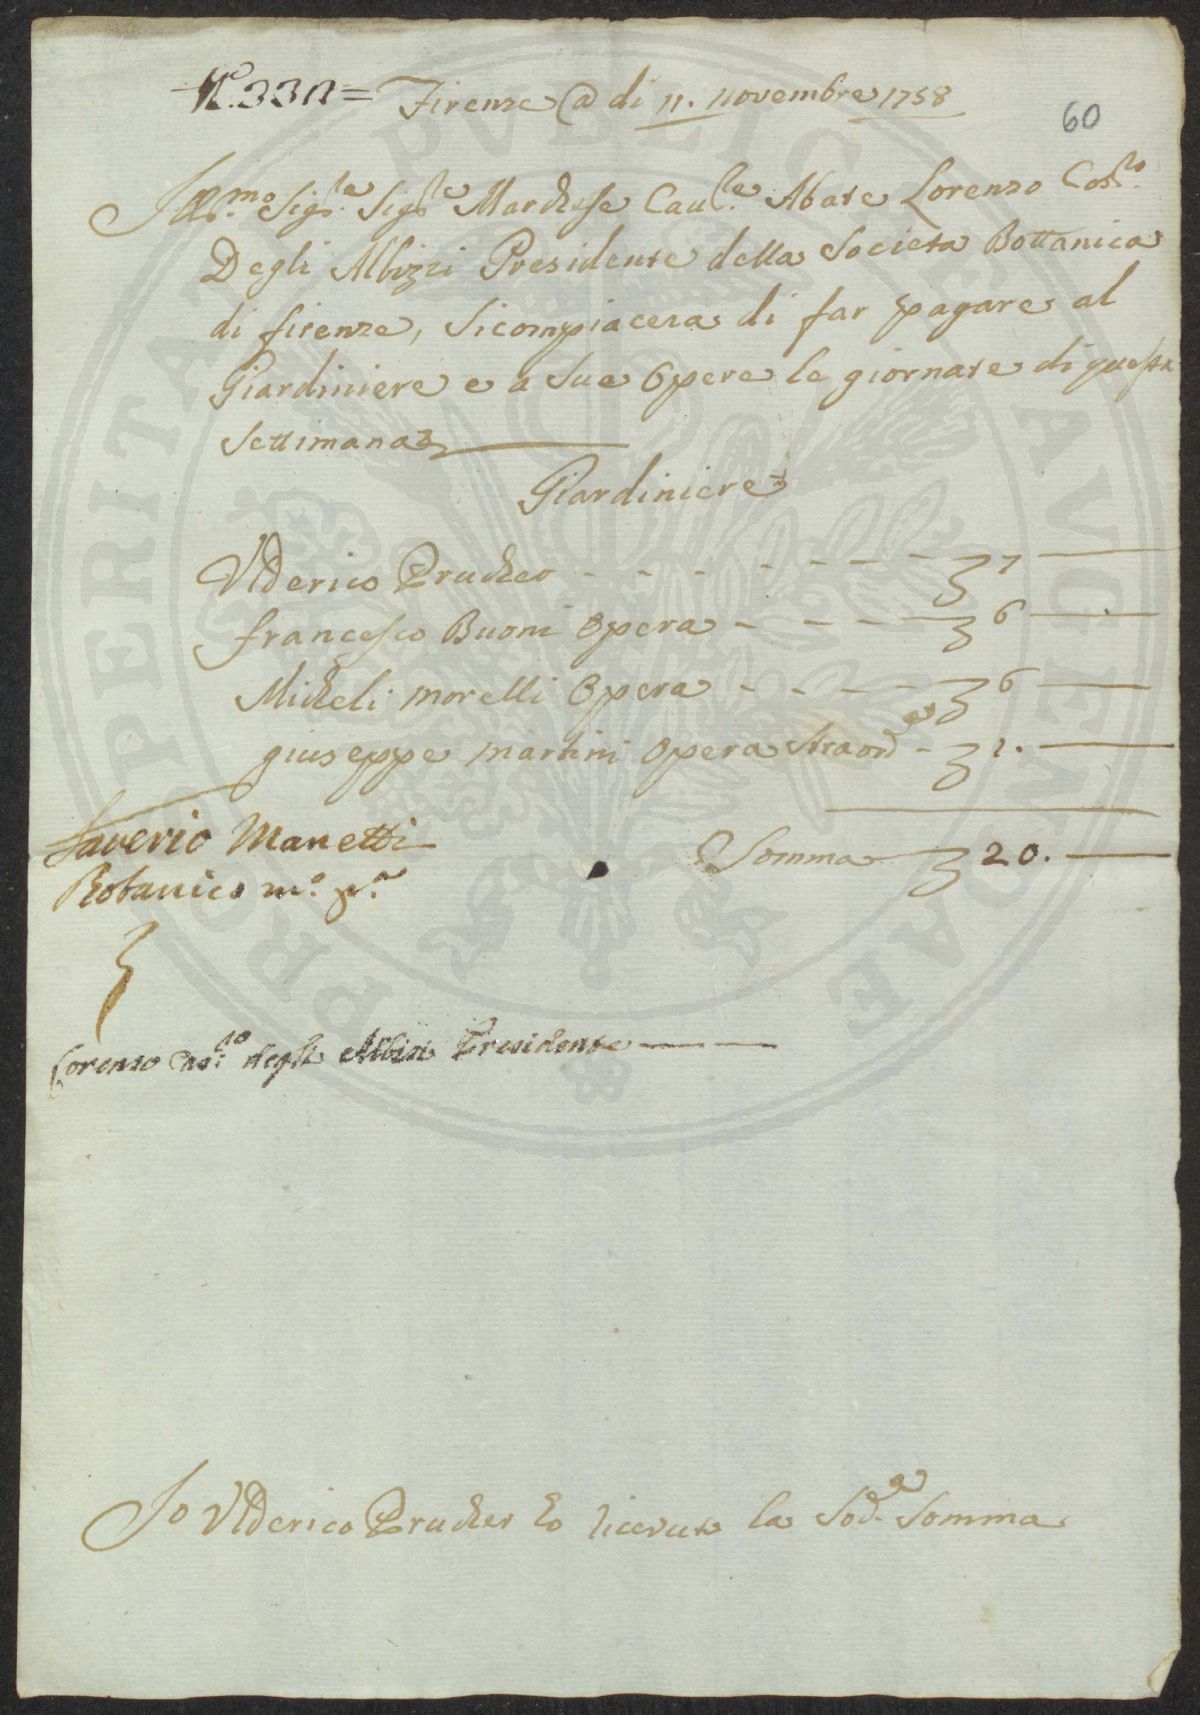 N.° 330 = Firenze @ di 11. novembre 1758
60
Ill:mo Sig:re Sig:re Marchese Cau:re Abate Lorenzo Cos:to
Degli Albizzi Presidente della Societa Bottanica
di firenze, Si compiacera di far pagare al
Giardiniere e a Sue Opere le giornate di questa
Settimana
Giardiniere
Vlderico Prucher - - - - - - - 7
francesco Buoni Opera - - - - 6
Micheli morelli Opera - - - - 6
giuseppe martini Opera Straord:a - 1.
Saverio Manetti
Somma 20.
Botanico m.° p.°
Lorenzo Cos:to degli Albizi Presidente
Io Vlderico Prucher ho riceuuto la Sod:a Somma
PROSPERITATI PVBLICAE AVGENDAE